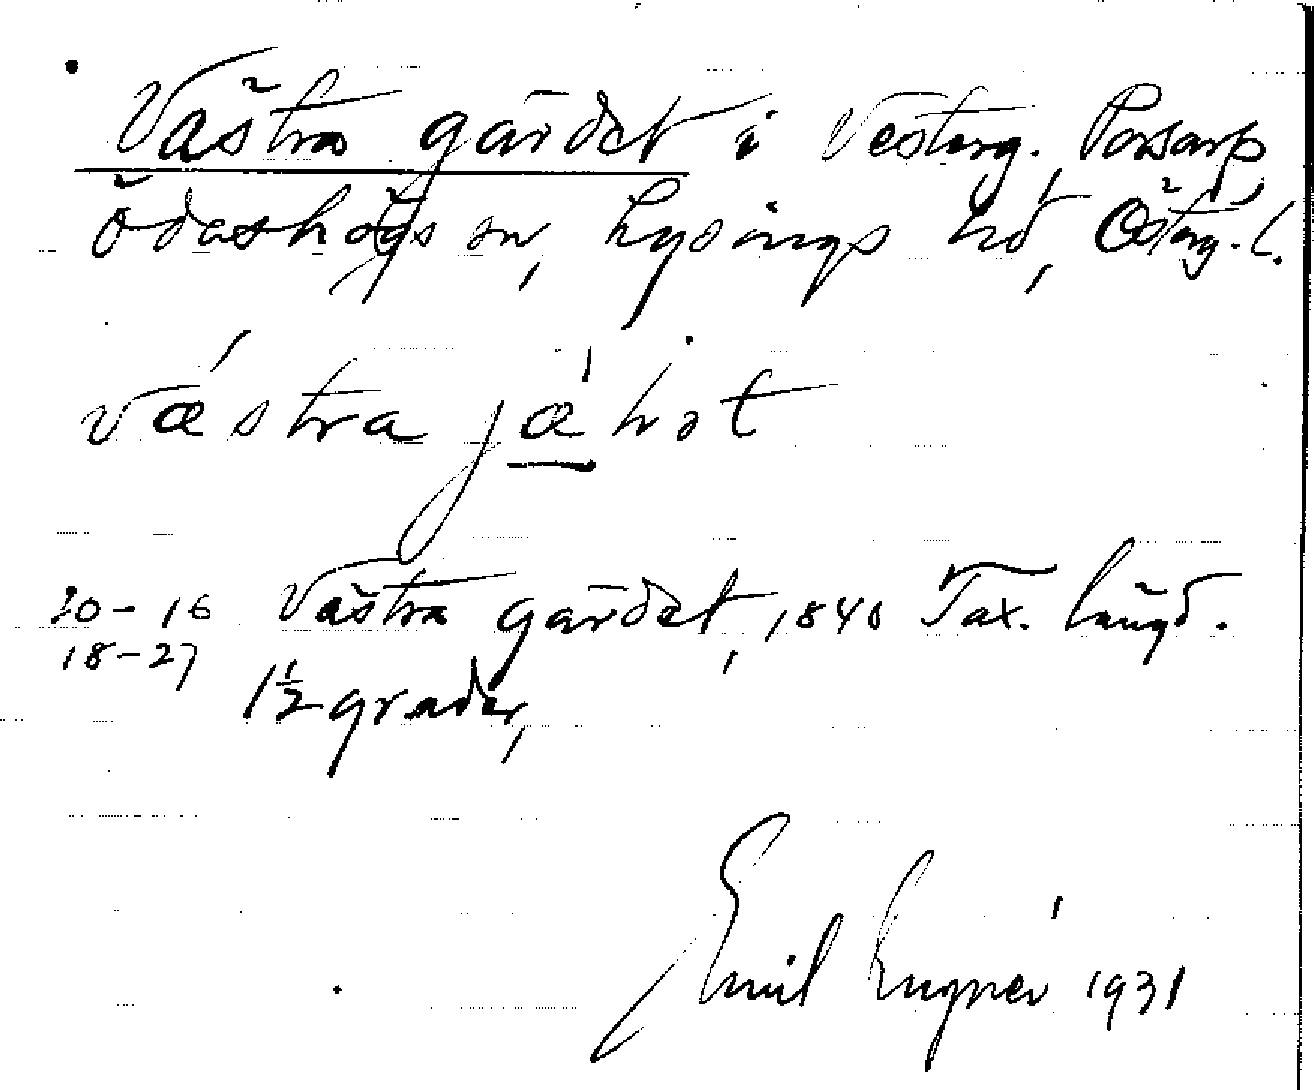 Västra gärdet i Vesterg. Porsarp
Ödeshögs sn, Lysings hd, Österg. l.
västra jæ̲hrət
20-16 Västra gärdet, 1840 Tax. längd.
18-27 1½ grader,
Emil 1931